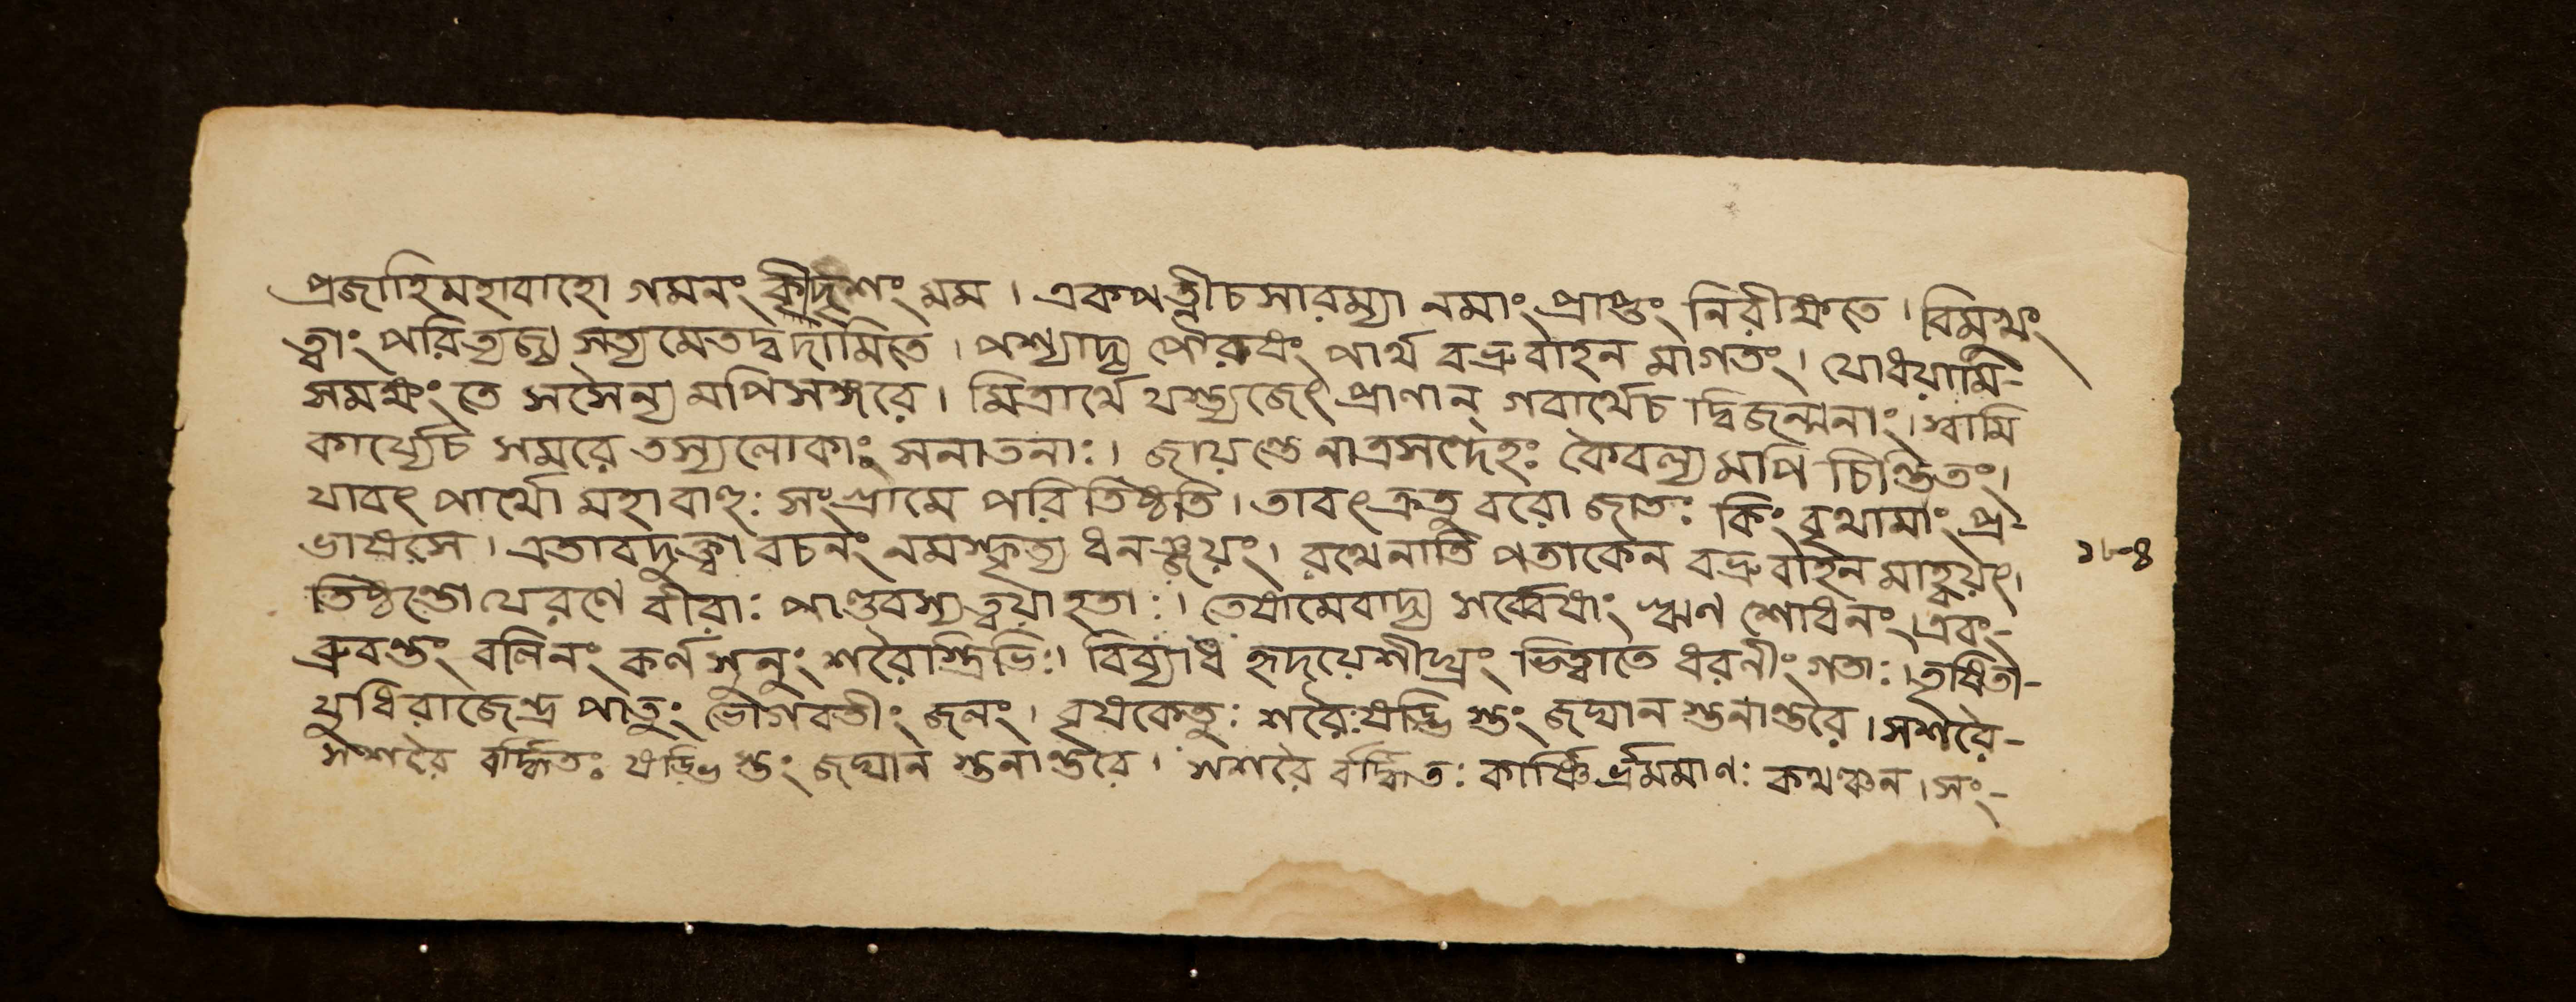 প্রজাহিমহাবাহো গমনং কীদৃশং মম । একপত্নীচসারম্যা নমাং প্রাপ্তং নিরীক্ষতে । বিমুখং
ত্বাং পরিত্যজ্য সত্যমেতদ্বদামিতে । পশ্যাদ্য পৌরুষং পার্থ বভ্রুবাহন মাগতং । যোধয়ামি-
সমক্ষং তে সসৈন্য মপিসঙ্গরে । মিত্রার্থে যস্ত্যজেৎ প্রাণান্ গবার্থেচ দ্বিজন্মনাং । স্বামি
কার্য্যেচ সমরে তস্যলোকাঃ সনাতনাঃ । জায়ন্তে নাত্রসন্দেহঃ কৈবল্য মপি চিন্তিতং ।
যাবৎ পার্থো মহাবাহুঃ সংগ্রামে পরি তিষ্ঠতি । তাবৎ ক্রতু বরো জাতঃ কিং বৃথামাং প্র-
ভাষসে । এতাবদুক্ত্বা বচনং নমস্কৃত্য ধনঞ্জয়ং । রথেনাতি পতাকেন বভ্রুবাহন মাহ্বয়ৎ ।
তিষ্ঠন্তো যেরণে বীরাঃ পাণ্ডবস্য ত্বয়া হতাঃ । তেষামেবাদ্য সর্ব্বেষাং ঋণ শোধনং । এবং-
ব্রুবন্তং বলিনং কর্ণ সুনুং শরৈস্ত্রিভিঃ । বিব্যাধ হৃদয়েশীঘ্রং ভিত্বাতে ধরনীং গতাঃ । তৃষিতা-
যুধিরাজেন্দ্র পাতুং ভোগবতীং জনং । বৃষকেতুঃ শরৈঃ ষড়্ভি স্তং জঘান স্তনান্তরৈ । সশরৈ-
সশরৈ র্বর্দ্ধিতঃ ষড়্ভি স্তং জঘান স্তনান্তরে । সশরৈ র্বর্দ্ধিতঃ কার্ষ্ণি র্ভ্রমমাণঃ কথঞ্চন । সং-
১৮৪